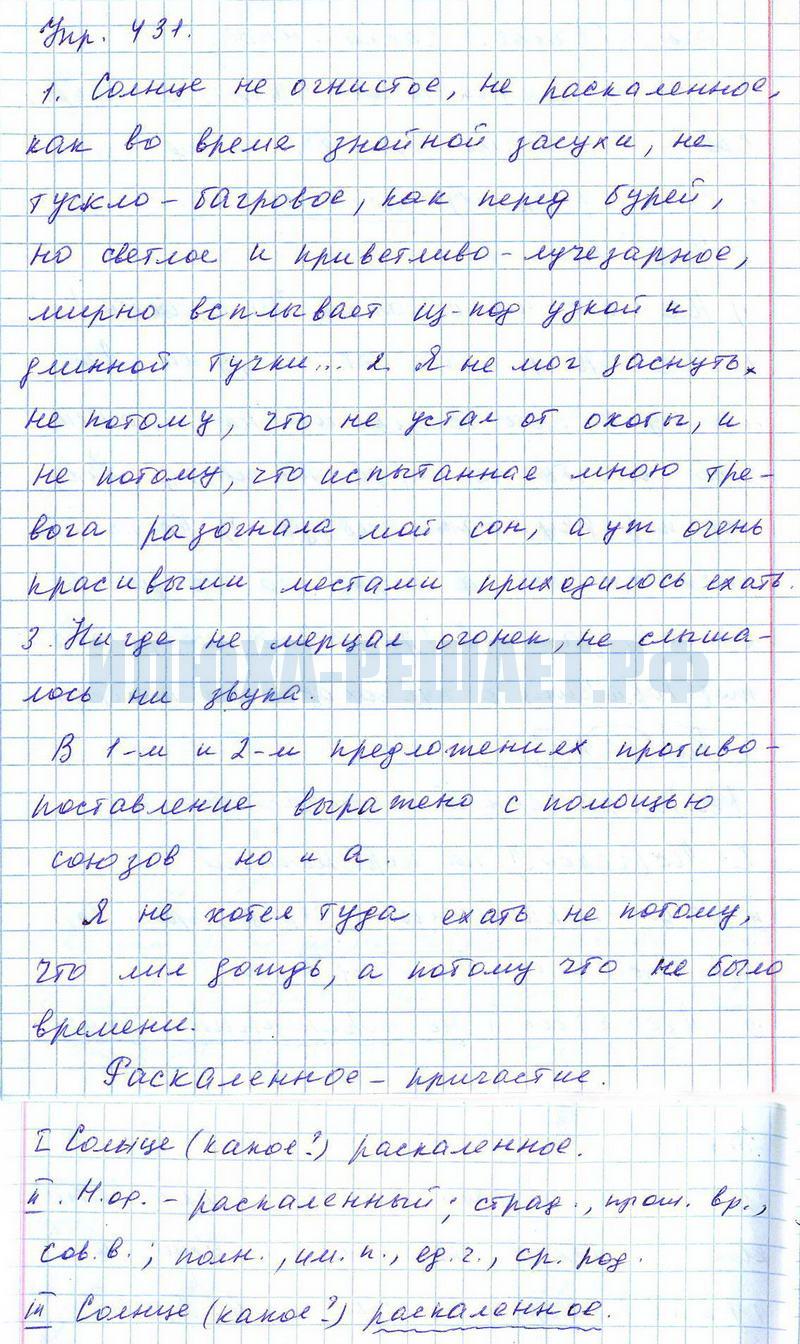 Упр. 431.
1. Солнце не огнистое, не раскаленное,
как во время знойной засухи, не
тускло-багровое, как перед бурей,
но светлое и приветливо-лучезарное,
мирно всплывает из-под узкой и
длинной тучки... 2. Я не мог заснуть
не потому, что не устал от охоты, и
не потому, что испытанная мною тре-
вога разогнала мой сон, а уж очень
красивыми местами приходилось ехать.
3. Нигде не мерцал огонек, не слыша-
лось ни звука.
ИЛЮХА-РЕШАЕТ.РФ
В 1-м и 2-м предложениях противо-
поставление выражено с помощью
союзов но и а.
Я не хотел туда ехать не потому,
что лил дождь, а потому что не было
времени.
Раскаленное - причастие.
I Солнце (какое?) раскаленное.
II. Н.ф. - раскаленный; страд., прош. вр.,
сов.в.; полн., им.п., ед.ч., ср. род.
III Солнце (какое?) раскаленное.